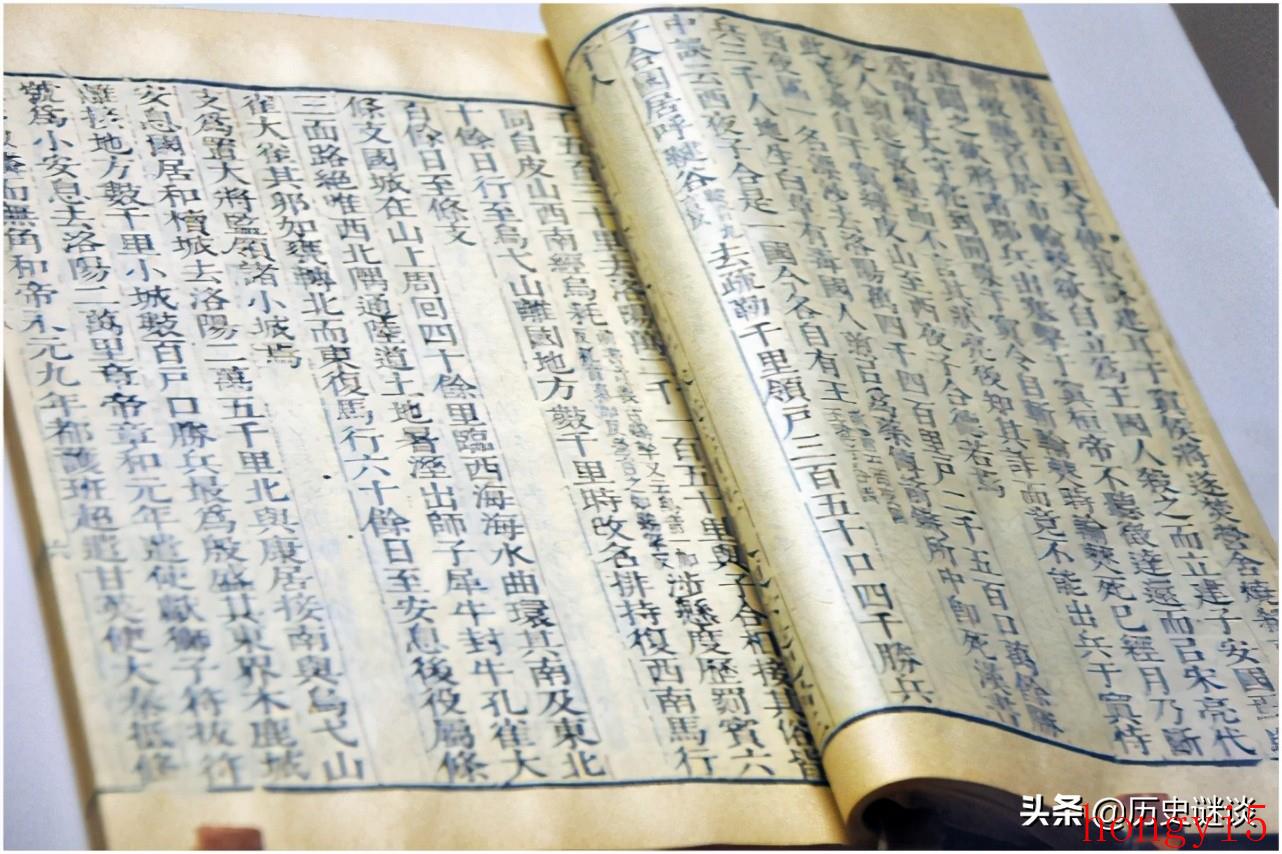 告曰天子使我誅建耳于寘侯將遂焚營舍燒
於市輸僰欲自立爲王國人殺之而立建子安國
達聞之欲將諸郡兵出塞擊于寘桓帝不聽徵達還而以宋亮代
到開募于寘令自斬輸僰時輸僰死已經月乃斷
死人頭送敦煌而不言其狀亮後知其詐而竟不能出兵于寘恃
此遂驕自于寘經皮山至西夜子合德若焉
西夜國一名漂沙去洛陽萬四千四百里戶二千五百口萬餘勝
兵三千人地生白草有毒國人煎以爲藥傅箭鏃所中即死漢書
中誤云西夜子合是一國今各自有王
子合國居呼鞬谷去疏勒千里領戶三百五十口四千勝兵
千人
千一百五十里與子合相接其俗皆
同自皮山西南經烏秅涉懸度歷罽賓六
十餘日行至烏弋山離國地方數千里時改名排持復西南馬行
百餘日至條支
條支國城在山上周回四十餘里臨西海海水曲環其南及東北
三面路絕唯西北隅通陸道土地暑溼出師子犀牛封牛孔雀大
雀大雀其卵如甕轉北而東復馬行六十餘日至安息後役屬條
支爲置大將監領諸小城焉
安息國居和櫝城去洛陽二萬五千里北與康居接南與烏弋山
離接地方數千里小城數百戶口勝兵最爲殷盛其東界木鹿城
號爲小安息去洛陽二萬里章帝章和元年遣使獻獅子符拔符
而無角和帝永元九年都護班超遣甘英使大秦抵條
头条 @历史谜谈
hongy15